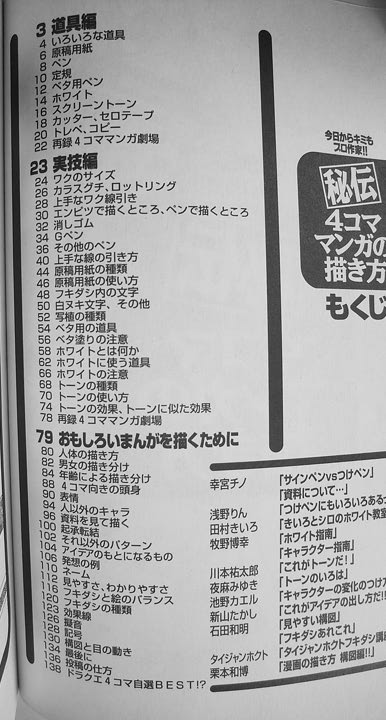 今日からキミも
プロ作家!!
秘伝
4コマ
マンガの
描き方
もくじ
3 道具編
4 いろいろな道具
6 原稿用紙
8 ペン
10 定規
12 ベタ用ペン
14 ホワイト
16 スクリーントーン
18 カッター、セロテープ
20 トレペ、コピー
22 再録4コママンガ劇場
23 実技編
24 ワクのサイズ
26 カラスグチ、ロットリング
28 上手なワク線引き
30 エンピツで描くところ、ペンで描くところ
32 消しゴム
34 Gペン
36 その他のペン
40 上手な線の引き方
44 原稿用紙の種類
46 原稿用紙の使い方
48 フキダシ内の文字
50 白ヌキ文字、その他
52 写植の種類
54 ベタ用の道具
56 ベタ塗りの注意
58 ホワイトとは何か
62 ホワイトに使う道具
66 ホワイトの注意
68 トーンの種類
70 トーンの使い方
74 トーンの効果、トーンに似た効果
78 再録4コママンガ劇場
79 おもしろいまんがを描くために
80 人体の描き方
82 男女の描き分け
84 年齢による描き分け
88 4コマ向きの頭身
90 表情
94 人以外のキャラ
96 資料を見て描く
100 起承転結
102 それ以外のパターン
104 アイデアのもとになるもの
106 発想の例
110 ネーム
112 見やすさ、わかりやすさ
116 フキダシと絵のバランス
120 フキダシの種類
123 効果線
126 擬音
128 記号
130 構図と目の動き
134 最後に
136 投稿の仕方
138 ドラクエ4コマ自選BEST!?
幸宮チノ 「サインペンvsつけペン」
「資料について…」
浅野りん 「つけペンにもいろいろあるっ
田村きいろ 「きいろとシロのホワイト教室
牧野博幸 「ホワイト指南」
「キャラクター指南」
川本祐太郎 「これがトーンだ!」
夜麻みゆき 「トーンのいろは」
池野カエル 「キャラクターの変化のつけ
新山たかし 「これがアイデアの出し方だ!!
石田和明 「見やすい構図」
「フキダシあれこれ」
タイジャンホクト 「タイジャンホクトフキダシ講
栗本和博 「漫画の描き方 構図編!!」